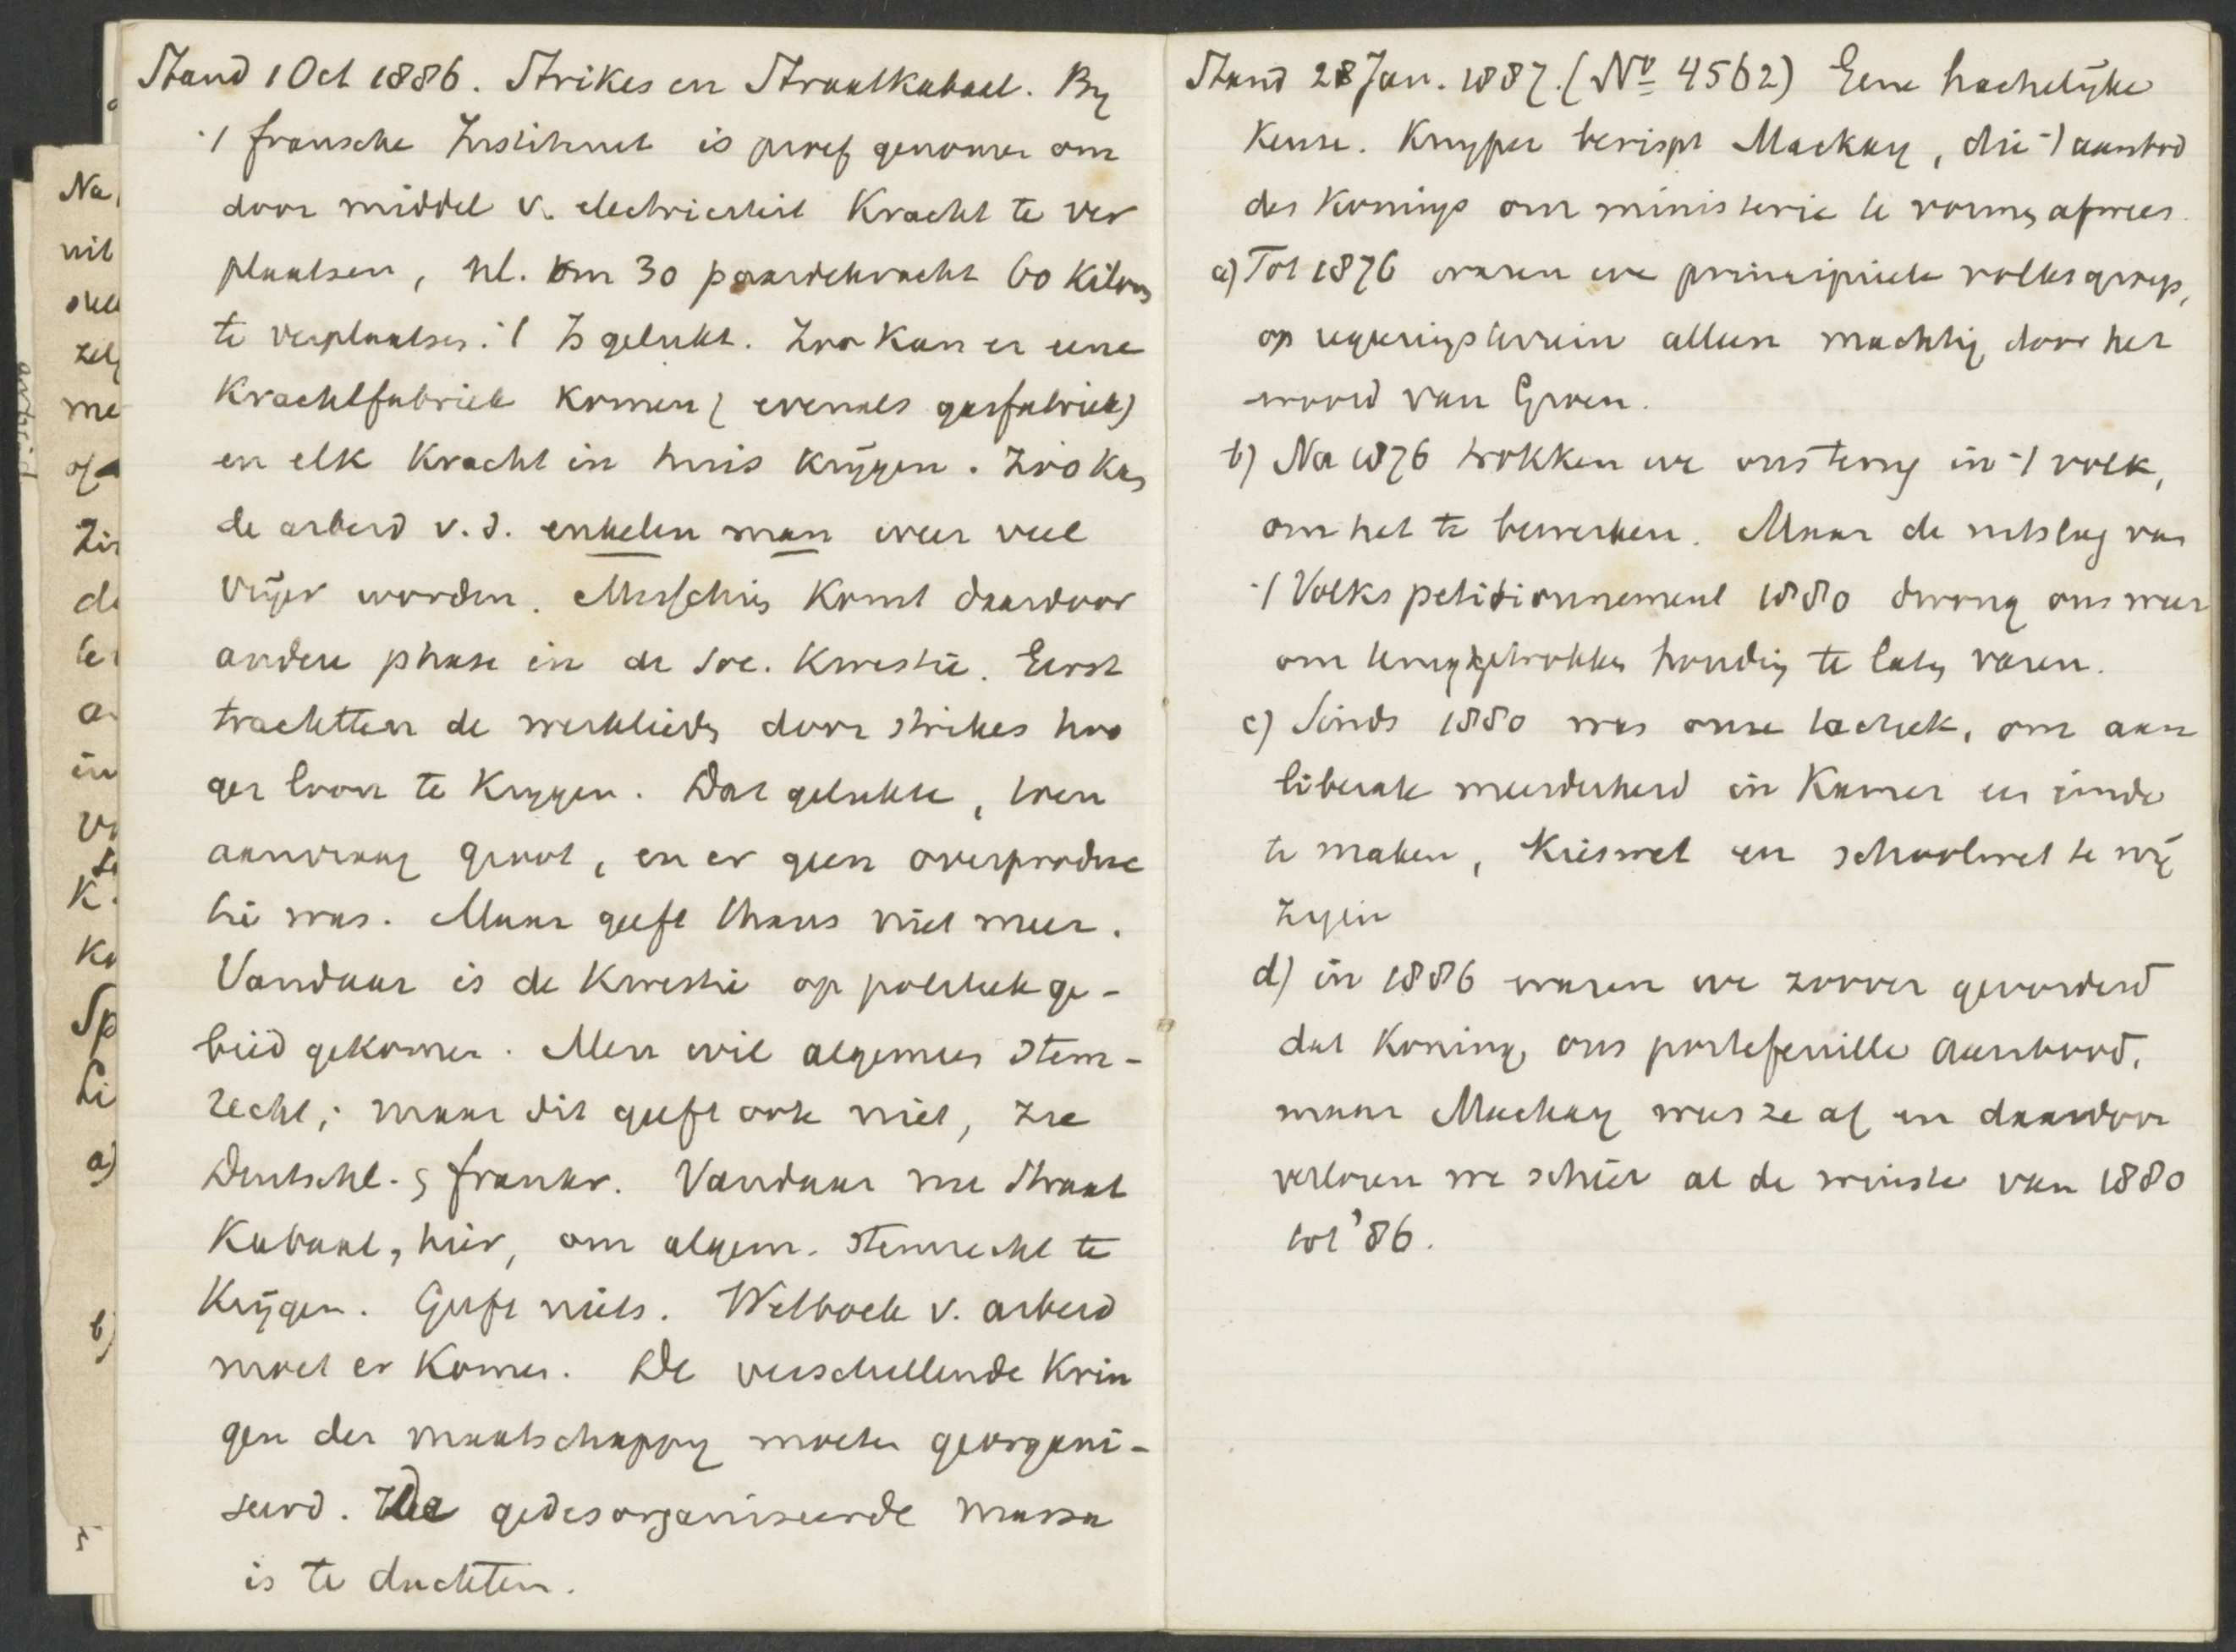 Stand 1 Oct 1886. Strikes en Straatkabaal. By
't fransche Instituut is proef genomen om
door middel v. electriciteit Kracht te ver
plaatsen, nl. om 30 paardekracht 60 Kilom
te verplaatsen. 't Is gelukt. Zoo Kan er eene
Krachtfabriek Komen (evenals gasfabriek)
en elk Kracht in huis Krijgen. Zóó Kan
de arbeid v. d. enkelen man weer veel
vrijer worden. Misschien Komt daardoor
andere phase in de soc. Kwestie. Eerst
trachtten de werklieden door strikes hoo
ger loon te Krygen. Dat gelukte, toen
aanvraag groot, en er geen overproduc
tie was. Maar geeft thans niet meer.
Vandaar is de Kwestie op politiek ge-
bied gekomen. Men wil algemeen stem-
recht; maar dit geeft ook niet, zie
Duitschl. & frankr. Vandaar nu Straat
Kabaal, hier, om algem. stemrecht te
Krijgen. Geeft niets. Wetboek v. arbeid
moet er Komen. De verschillende Krin
gen der maatschappy moeten georgani-
seerd. De gedesorganiseerde massa
is te duchten.
Stand 28 Jan. 1887. (No 4562) Eene hachelijke
Keuze. Kuyper berispt Mackay, die 't aanbod
des Konings om ministerie te vormen afwees.
a) Tot 1876 waren we principieele volksgroep,
op regeeringsterrein alleen machtig door het
woord van Groen.
b) Na 1876 trokken we ons terug in 't volk,
om het te bewerken. Maar de uitslag van
't Volkspetitionnement 1880 dwong ons weer
om teruggetrokken houding te laten varen.
c) Sinds 1880 was onze tactiek, om aan
liberale meerderheid in Kamer een einde
te maken, Kieswet en schoolwet te wij
zigen
d) in 1886 waren we zoover gevorderd
dat Koning ons portefeuille aanbood,
maar Mackay wees ze af en daardoor
verloren we schier al de winste van 1880
tot '86.
Na
uit
zelf
me
of
Zin
de
te
a
in
K.
Ko
Sp
Li
a)
b)